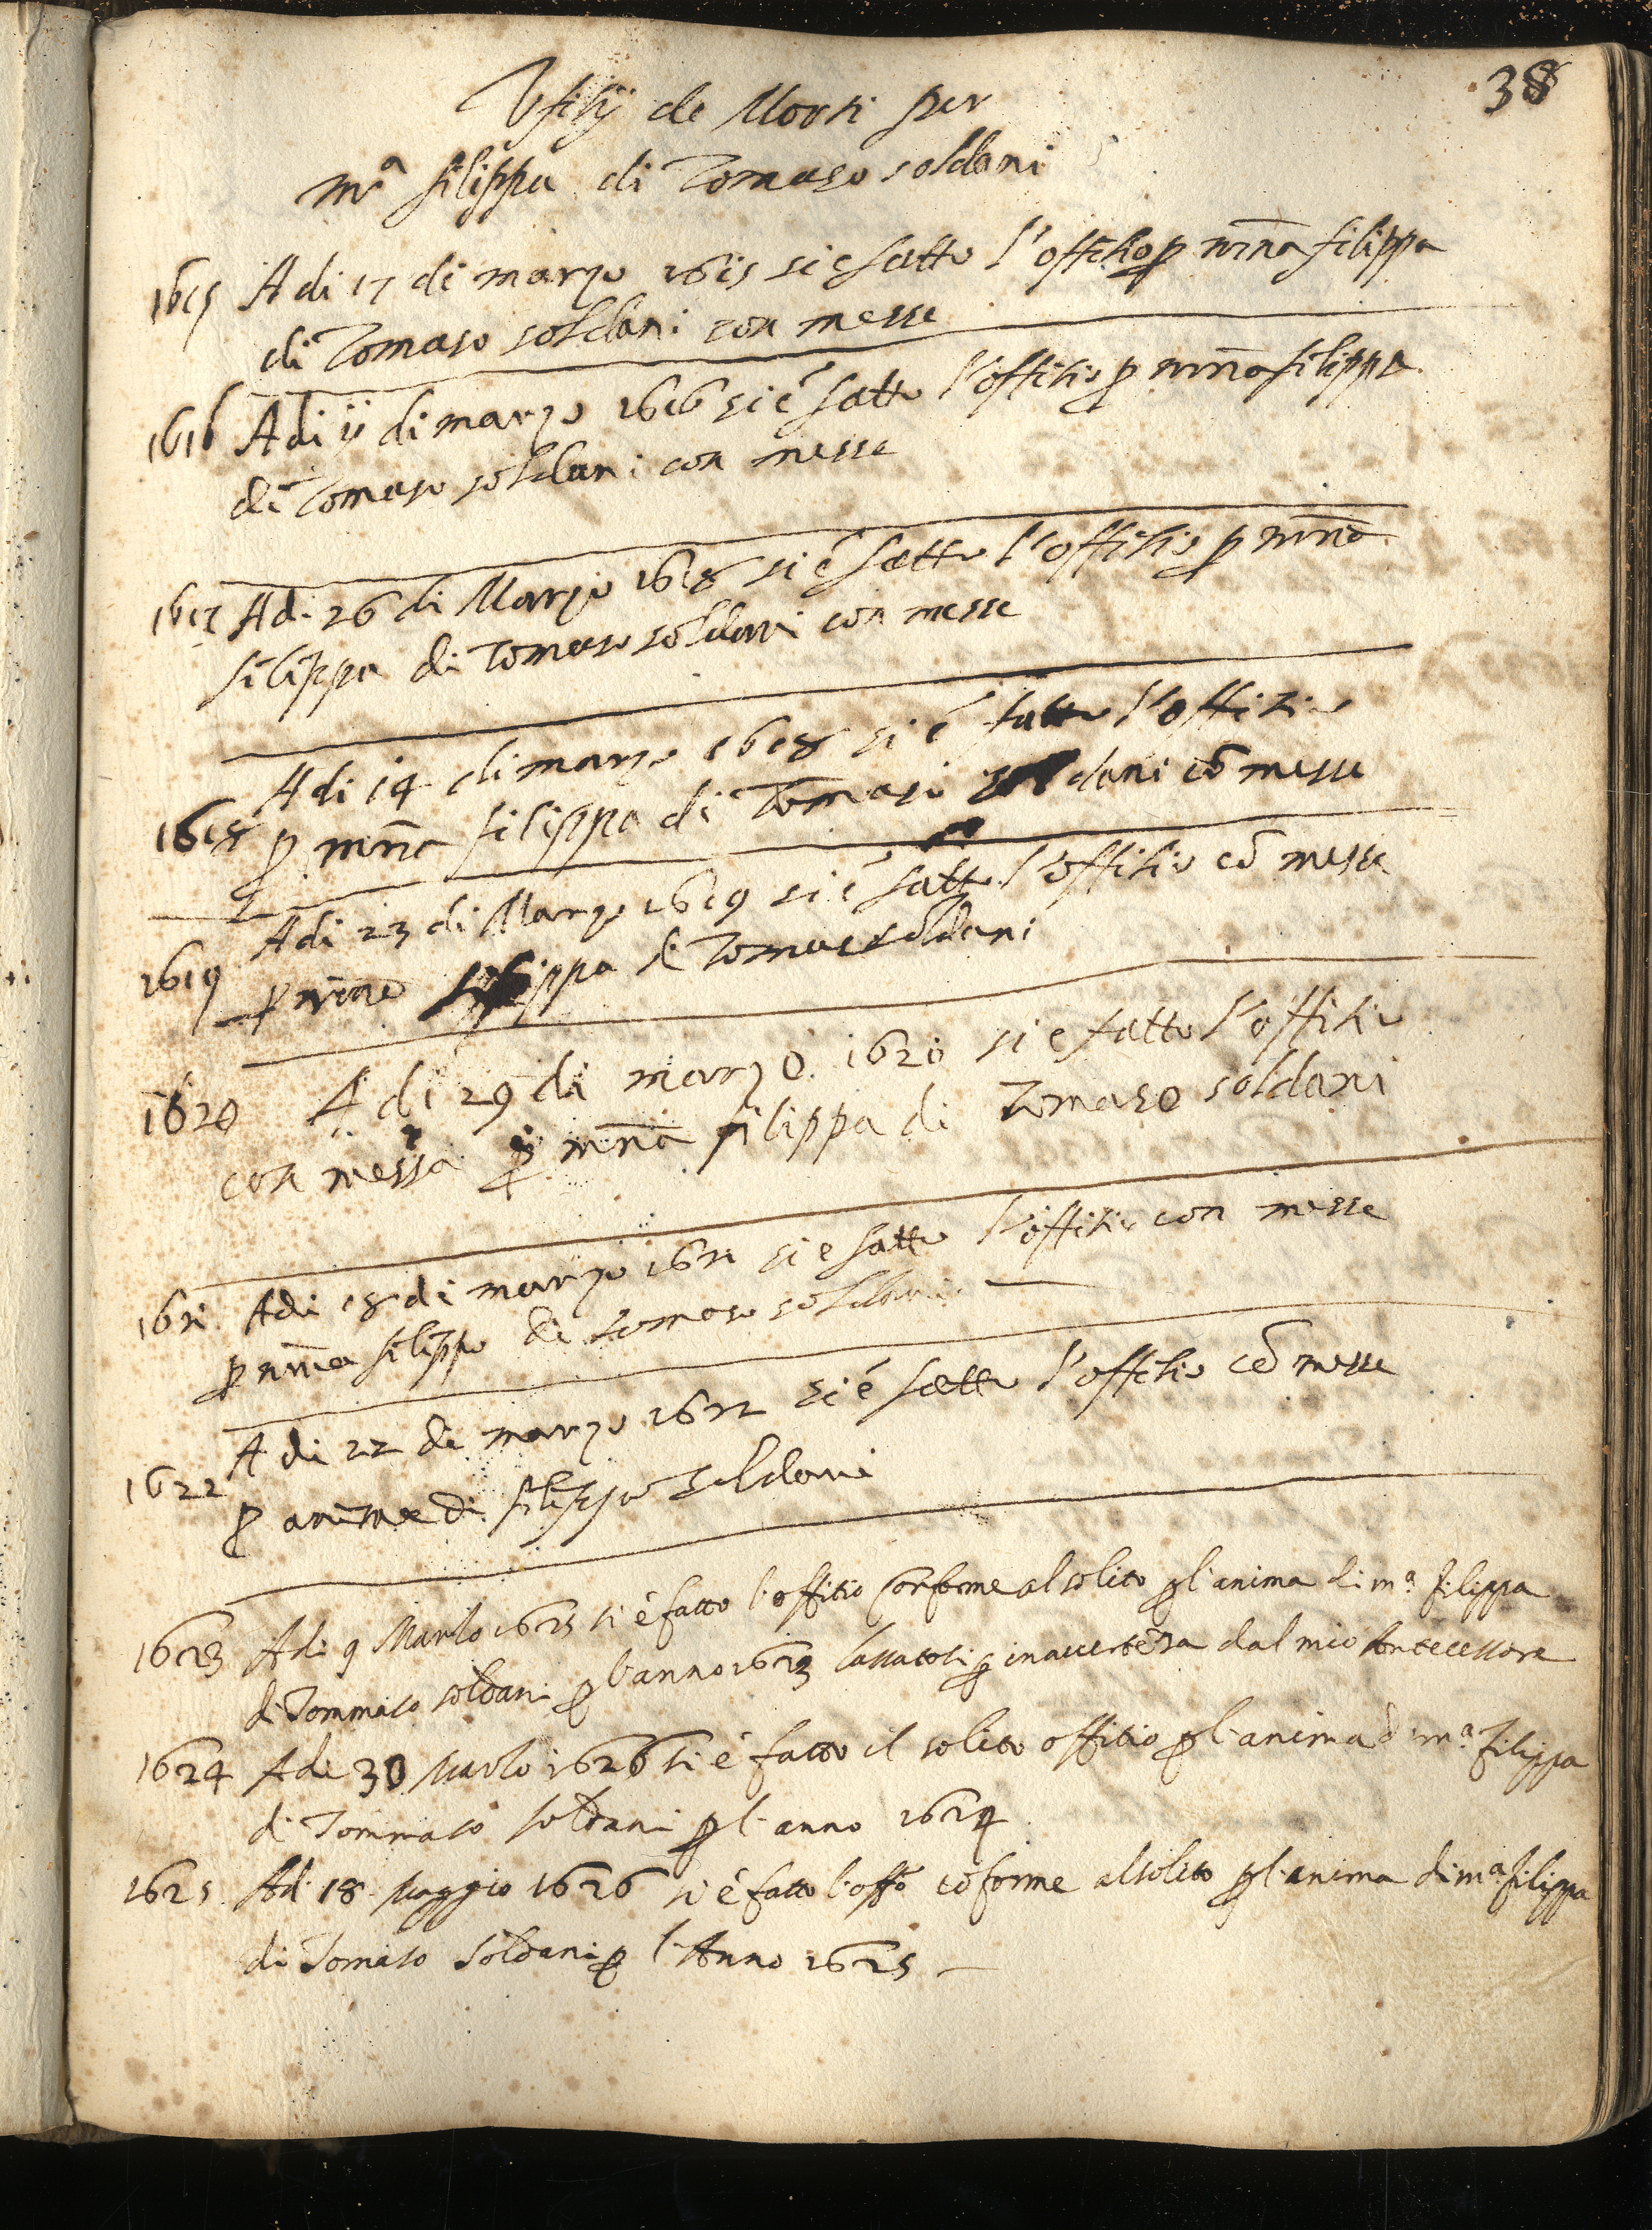 38
Vfitij de Morti per
mᵃ filippa di Tomaso soldani
1615 A di 17 di marzo 1615 si e fatto l'offitio p mnā filippa
di Tomaso soldani con messe
1616 A di ij di marzo 1616 si é fatto l'offitio p mnā filippa
di Tomaso soldani con messe
1617 A di 26 di Marzo 1618 si é fatto l'offitio p mnā
filippa di Tomaso soldani con messe
A di 14 di marzo 1618 si é fatto l'offitio
1618 p mnā filippa di Tomaso soldani cō messe
A di 23 di Marzo 1619 si é fatto l'offitio cō messe
1619 p filippa di Tomaso soldani
1620 A di 29 di marzo 1620 si e fatto l'offitio
con messa p mnā filippa di Tomaso soldani
1621 A di 18 di marzo 1621 si e fatto l'offitio con messe
p filippa di tomaso soldani
A di 22 di marzo 1622 si é fatto l'offitio cō messe
1622
p anima di filippa soldani
1623 A di 9 Marzo 1625 si é fatto l'offitio conforme al solito p l'anima di mᵃ filippa
di Tommaso soldani p l'anno 1623 lassatosi p inauertēza dal mio Antecessore
1624 A di 30 Marzo 1626 si é fatto il solito offitio p l'anima di mᵃ filippa
di Tommaso soldani p l'anno 1624
1625 Adi 18 Maggio 1626 si é fatto l'offō cōforme al solito p l'anima di mᵃ filippa
di Tomaso Soldani p l'Anno 1625